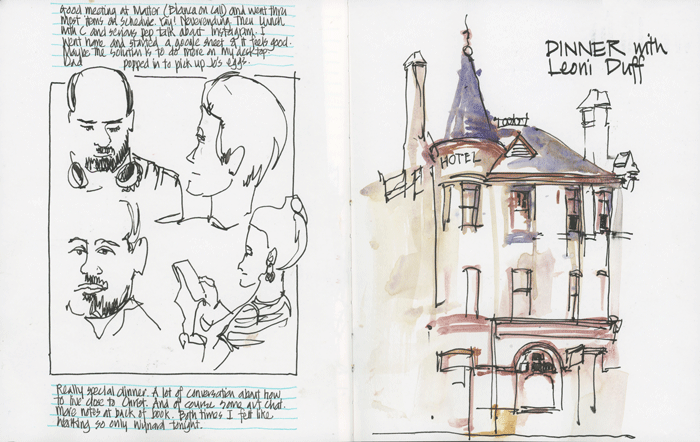 Good meeting at Mattor (Bianca on call) and went thru
most items on schedule. Yay! Neverending. Then lunch
with C and serious pep talk about Instagram. I
went home and started a google sheet & it feels good.
Maybe the solution is to do more on my desktop.
popped in to pick up Jo's eggs.
Really special dinner. A lot of conversation about how
to live close to Christ. And of course some art chat.
More notes at back of book. Both times I felt like
walking so only Wynard tonight.
DINNER with
Leoni Duff
HOTEL